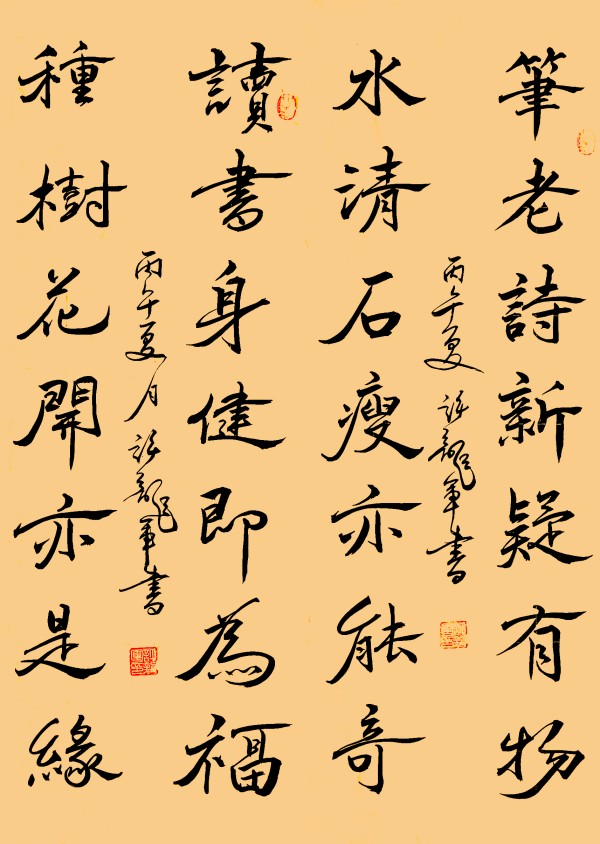 筆老詩新疑有物
丙午夏 許龍軍書
水清石瘦亦能奇
讀書身健即為福
丙午夏月 許龍軍書
種樹花開亦是緣